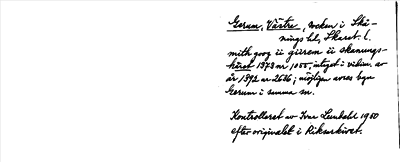 Gerum, Västra, socken i Skå-
nings hd, Skarab. l.
mith gooz ii girrem ii skænungs-
häret 1373 nr 1055, intaget i vidim. av
år 1392 nr 2686; möjligen avses byn
Gerum i samma sn.
Kontrollerat av Ivar Lundahl 1950
efter originalet i Riksarkivet.